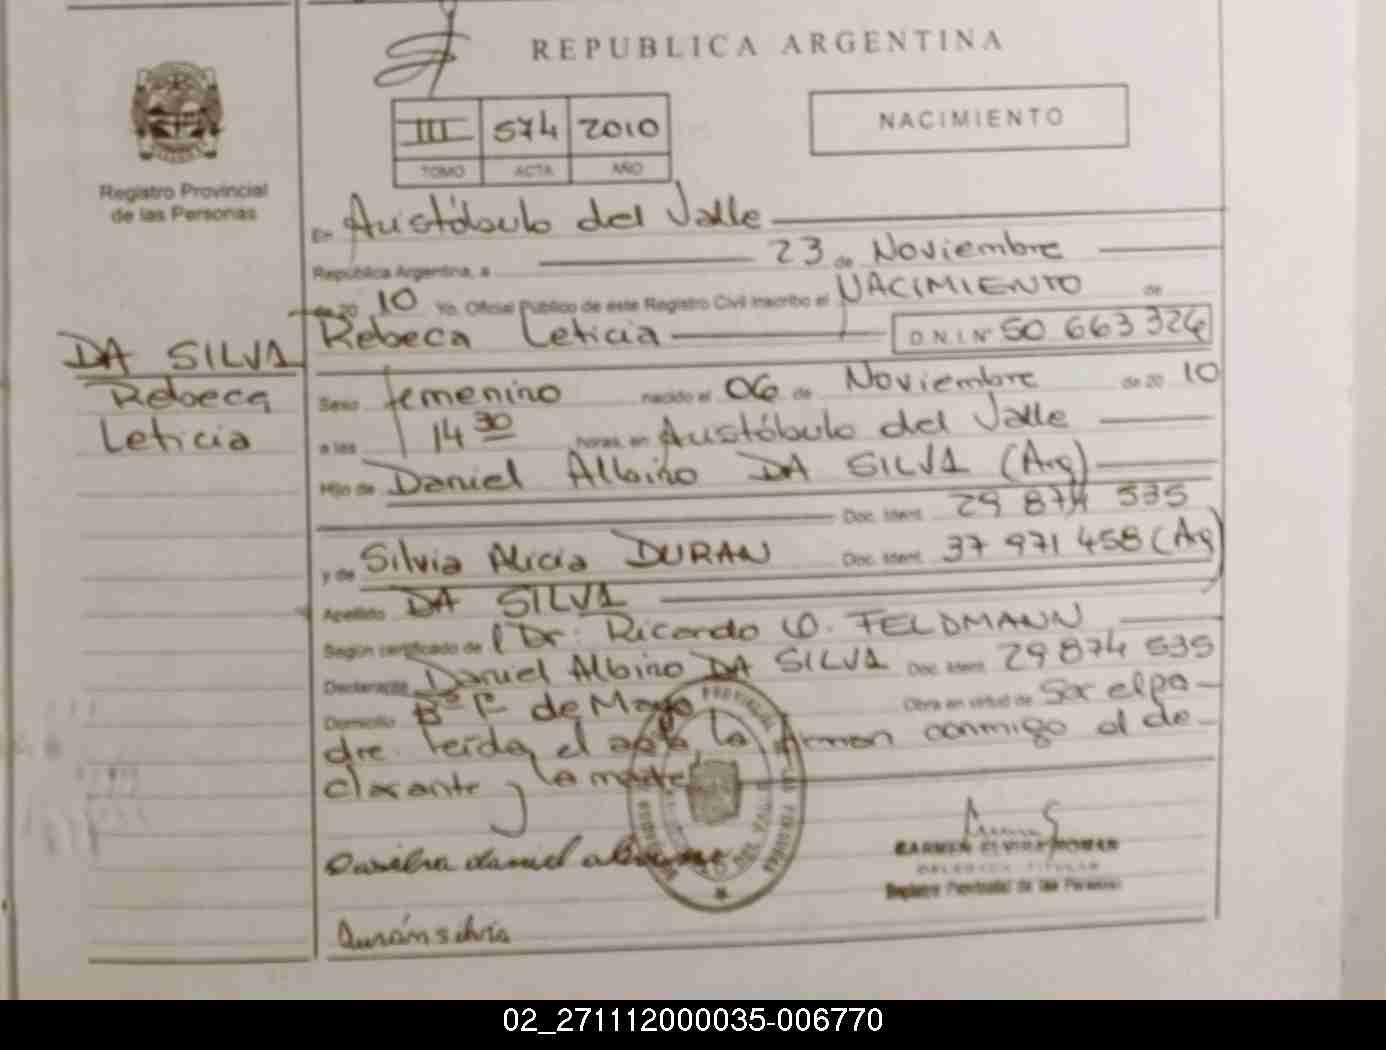 REPUBLICA ARGENTINA
III 574 2010
TOMO ACTA AÑO
NACIMIENTO
Registro Provincial
de las Personas
En Aristóbulo del Valle
República Argentina, a 23 de Noviembre
de 20 10 Yo, Oficial Público de este Registro Civil inscribo el NACIMIENTO de
Rebeca Leticia D.N.I.Nº 50 663 326
DA SILVA
Rebeca
Leticia
Sexo femenino nacido el 06 de Noviembre de 20 10
a las 14 30 horas, en Aristóbulo del Valle
Hijo de Daniel Albino DA SILVA (Arg)
Doc. Ident. 29 874 535
y de Silvia Alicia DURAN Doc. Ident. 37 971 458 (Arg)
Apellido DA SILVA
Según certificado de Dr. Ricardo FELDMANN
Declarante Daniel Albino DA SILVA Doc. Ident. 29 874 535
Domicilio Bº 1º de Mayo Obra en virtud de Ser el pa-
dre. Leída el acta, la firman conmigo el de-
clarante y la madre
Dasilva daniel albino
CARMEN ELVIRA ROMAN
DELEGADA TITULAR
Registro Provincial de las Personas
Durán silvia
02_271112000035-006770